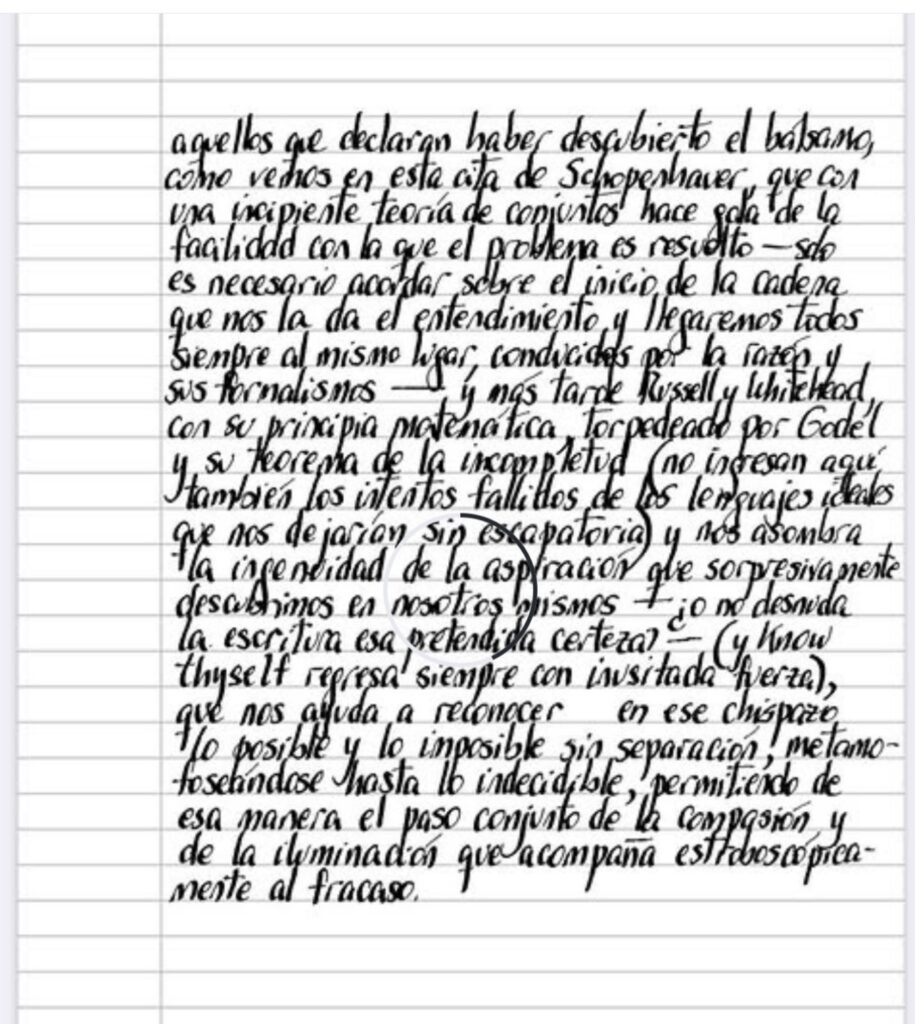 aquellos que declaran haber descubierto el bálsamo,
como vemos en esta cita de Schopenhauer, que con
una incipiente teoría de conjuntos hace gala de la
facilidad con la que el problema es resuelto — solo
es necesario acordar sobre el inicio de la cadena
que nos la da el entendimiento y llegaremos todos
siempre al mismo lugar, conducidos por la razón y
sus formalismos — y más tarde Russell y Whitehead,
con su principia matemática, torpedeado por Godël
y su teorema de la incompletud (no ingresan aquí
también los intentos fallidos de los lenguajes ideales
que nos dejarían sin escapatoria) y nos asombra
la ingenuidad de la aspiración que sorpresivamente
descubrimos en nosotros mismos — ¿o no desnuda
la escritura esa pretendida certeza? — (y Know
thyself regresa siempre con inusitada fuerza),
que nos ayuda a reconocer en ese chispazo
lo posible y lo imposible sin separación, metamo-
foseándose hasta lo indecidible, permitiendo de
esa manera el paso conjunto de la compasión y
de la iluminación que acompaña estroboscópica-
mente al fracaso.